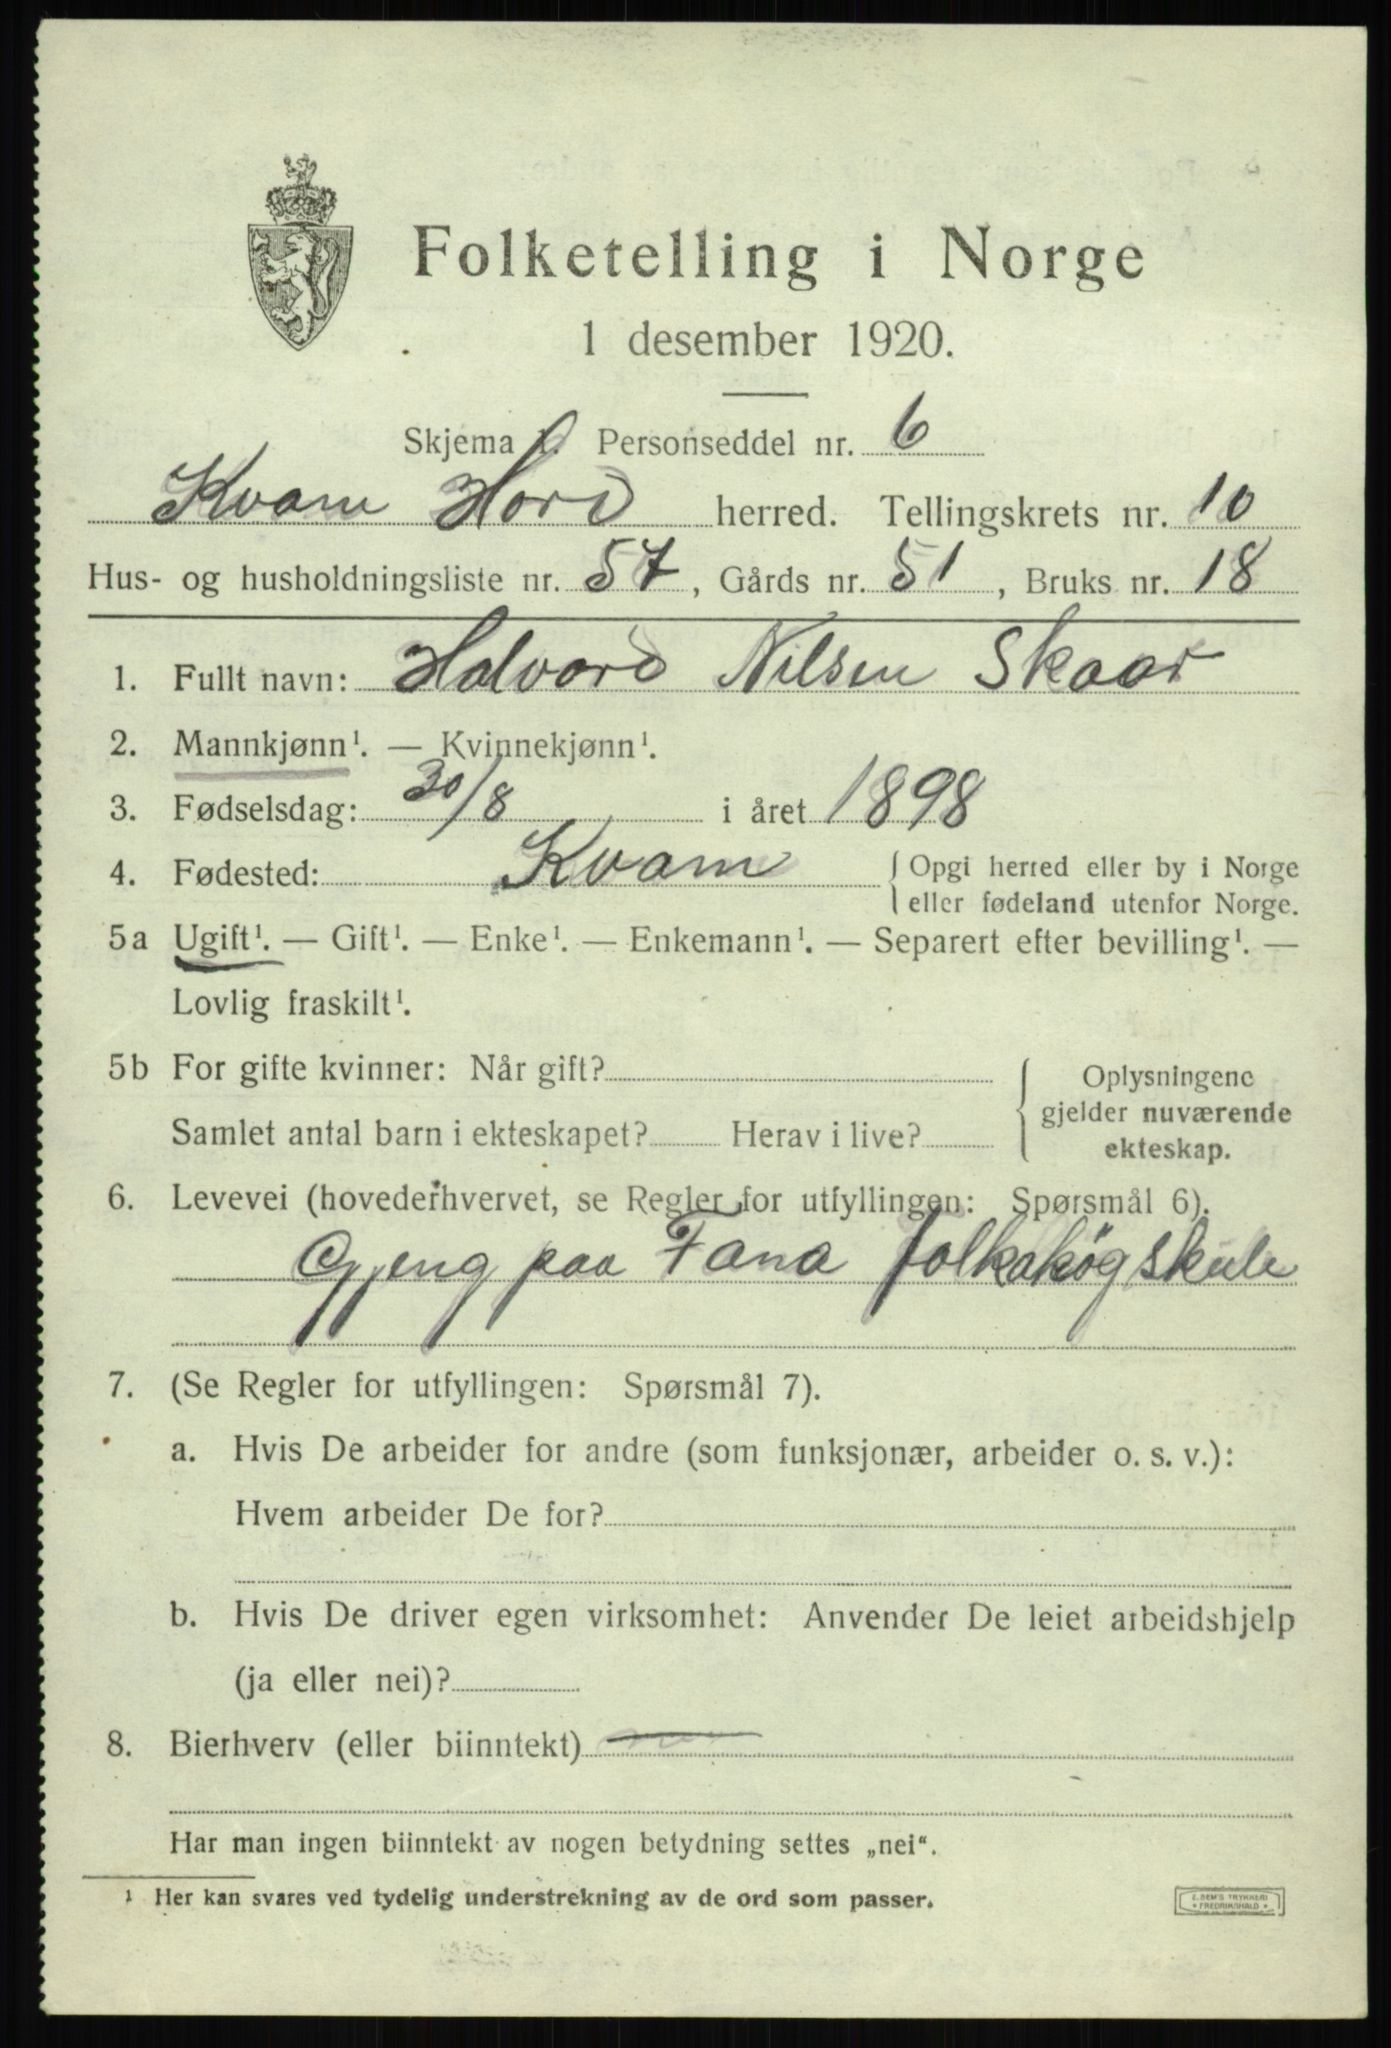 Folketelling i Norge
1 desember 1920.
Skjema 1. Personseddel nr. 6
Kvam Hord herred. Tellingskrets nr. 10
Hus- og husholdningsliste nr. 57, Gårds nr. 51, Bruks nr. 18
1. Fullt navn: Halvard Nilsen Skaar
2. Mannkjønn¹. — Kvinnekjønn¹.
3. Fødselsdag: 30/8 i året 1898
4. Fødested: Kvam { Opgi herred eller by i Norge
eller fødeland utenfor Norge.
5a Ugift¹. — Gift¹. — Enke¹. — Enkemann¹. — Separert efter bevilling¹. —
Lovlig fraskilt¹.
5b For gifte kvinner: Når gift?
Samlet antal barn i ekteskapet? Herav i live?
{ Oplysningene
gjelder nuværende
ekteskap.
6. Levevei (hovederhvervet, se Regler for utfyllingen: Spørsmål 6).
Gjeng paa Fana folkahøgskule
7. (Se Regler for utfyllingen: Spørsmål 7).
a. Hvis De arbeider for andre (som funksjonær, arbeider o. s. v.):
Hvem arbeider De for?
b. Hvis De driver egen virksomhet: Anvender De leiet arbeidshjelp
(ja eller nei)?
8. Bierhverv (eller biinntekt) —
Har man ingen biinntekt av nogen betydning settes „nei“.
¹ Her kan svares ved tydelig understrekning av de ord som passer.
E. SEM'S TRYKKERI
* FREDRIKSHALD *